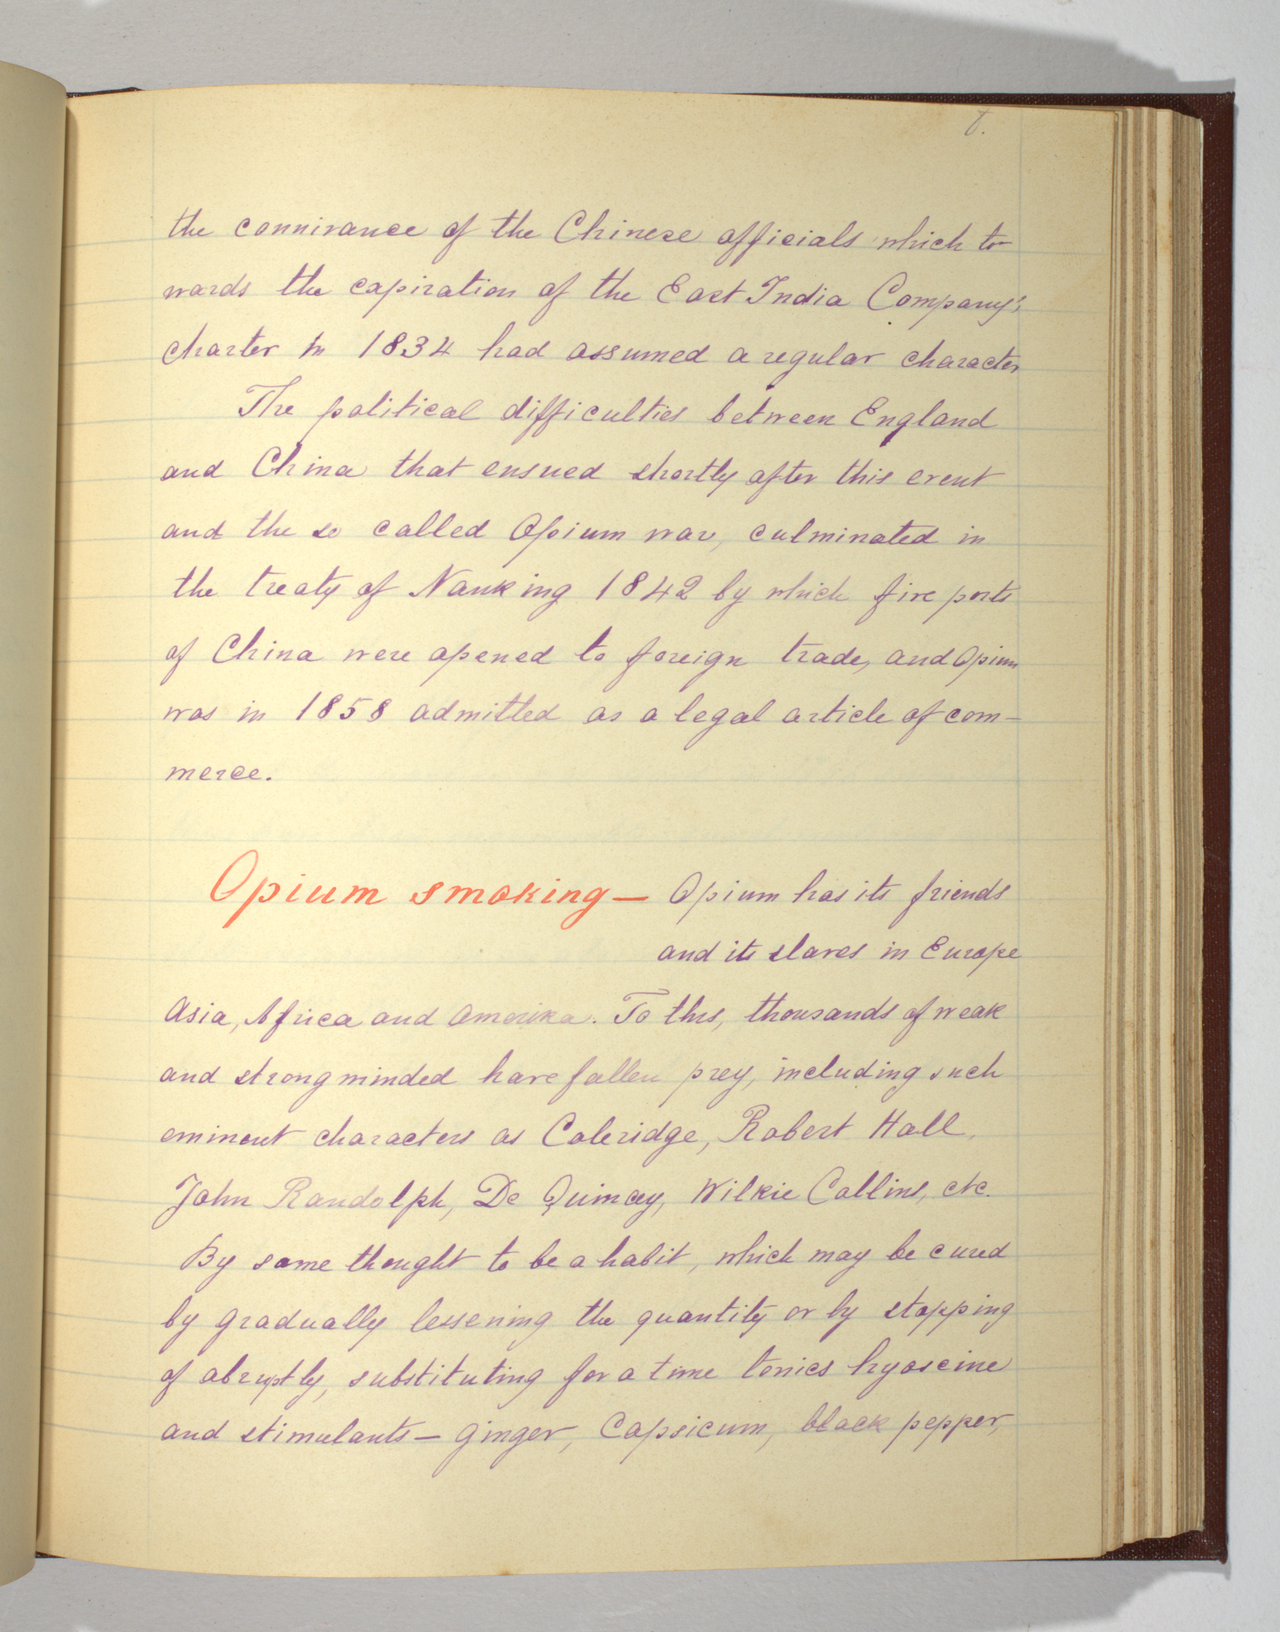 the connivance of the Chinese officials which to-
wards the expiration of the East India Company's
charter in 1834 had assumed a regular character
The political difficulties between England
and China that ensued shortly after this event
and the so called Opium war, culminated in
the treaty of Nanking 1842 by which five ports
of China were opened to foreign trade, and Opium
was in 1858 admitted as a legal article of com-
merce.
Opium smoking — Opium has its friends
and its slaves in Europe
Asia, Africa and Amerika. To this, thousands of weak
and strong minded have fallen prey, including such
eminent characters as Coleridge, Robert Hall,
John Randolph, De Quincey, Wilkie Collins, etc.
By some thought to be a habit, which may be cured
by gradually lessening the quantity or by stopping
of abruptly, substituting for a time tonics hyoscine
and stimulants — ginger, Capsicum, black pepper,